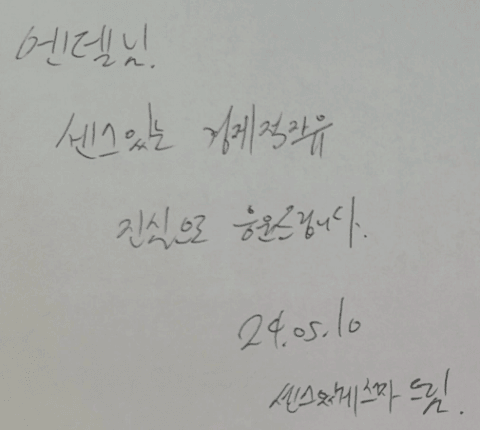 엔델님.
센스있는 경제적자유
진심으로 응원드립니다.
24.05.10
센스있게쓰자 드림.